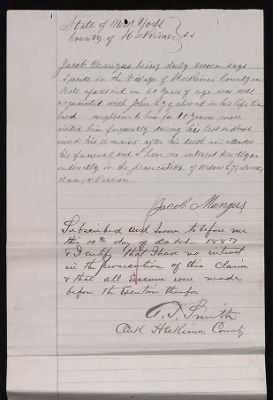 State of New York
County of Herkimer ss
Jacob Manges being duly sworn says
I reside in the village of Herkimer County and
State aforesaid am 60 years of age was well
acquainted with John E in his life time
lived neighbors to him for 10 years more
visited him frequently during his last sickness
viewed his remains after his death and attended
his funeral and I have no interest directly or
indirectly in the prosecution of Widow
claim, as Pension
Jacob Manges
Subscribed and sworn to before me
this 10th day of October 1887
& I certify that I have no interest
in the prosecution of this claim
& that all were made
before the Execution thereof
Smith
Clerk Herkimer County